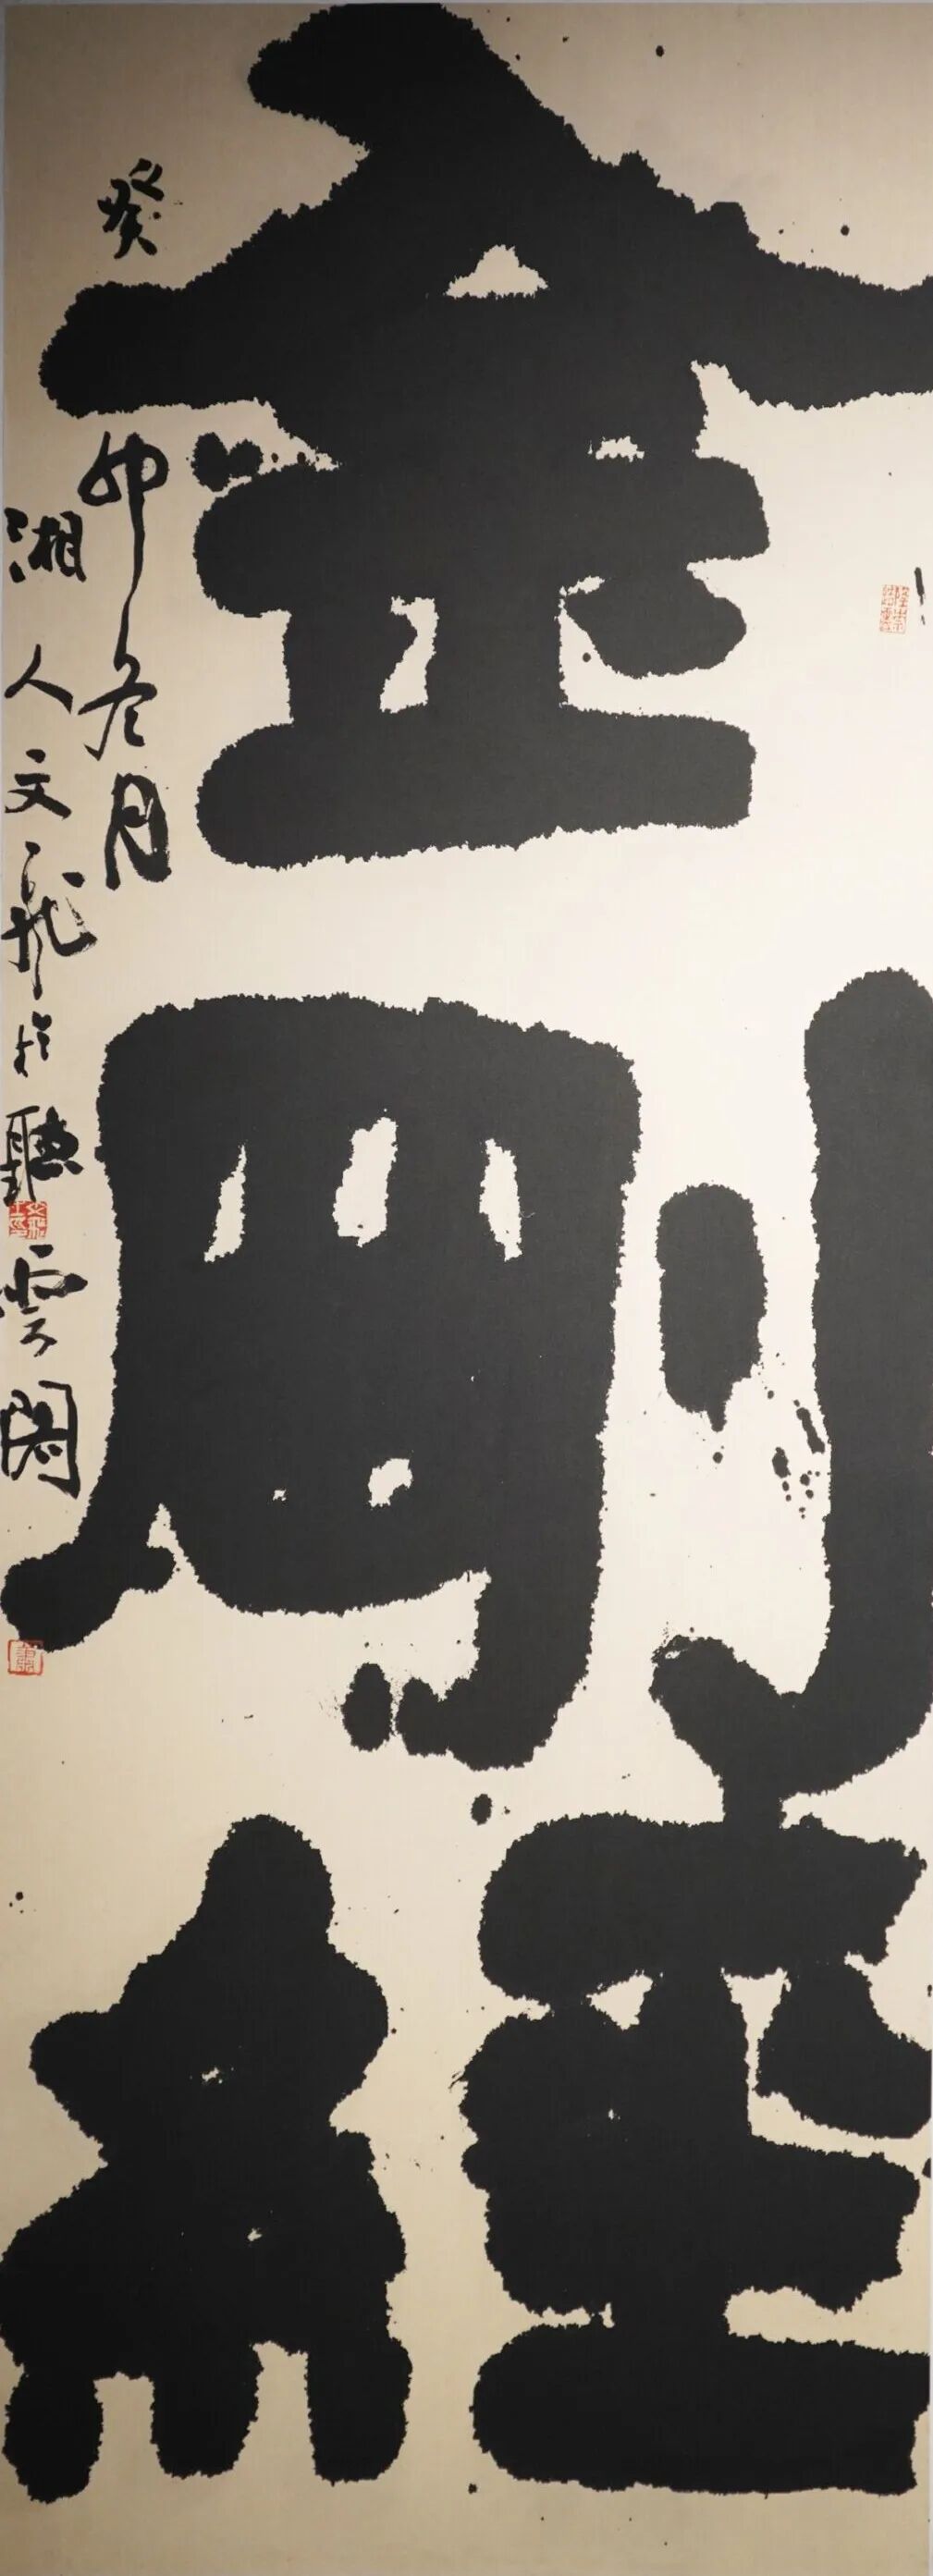 金剛經
癸卯冬月
湘人文飛於聽雲閣